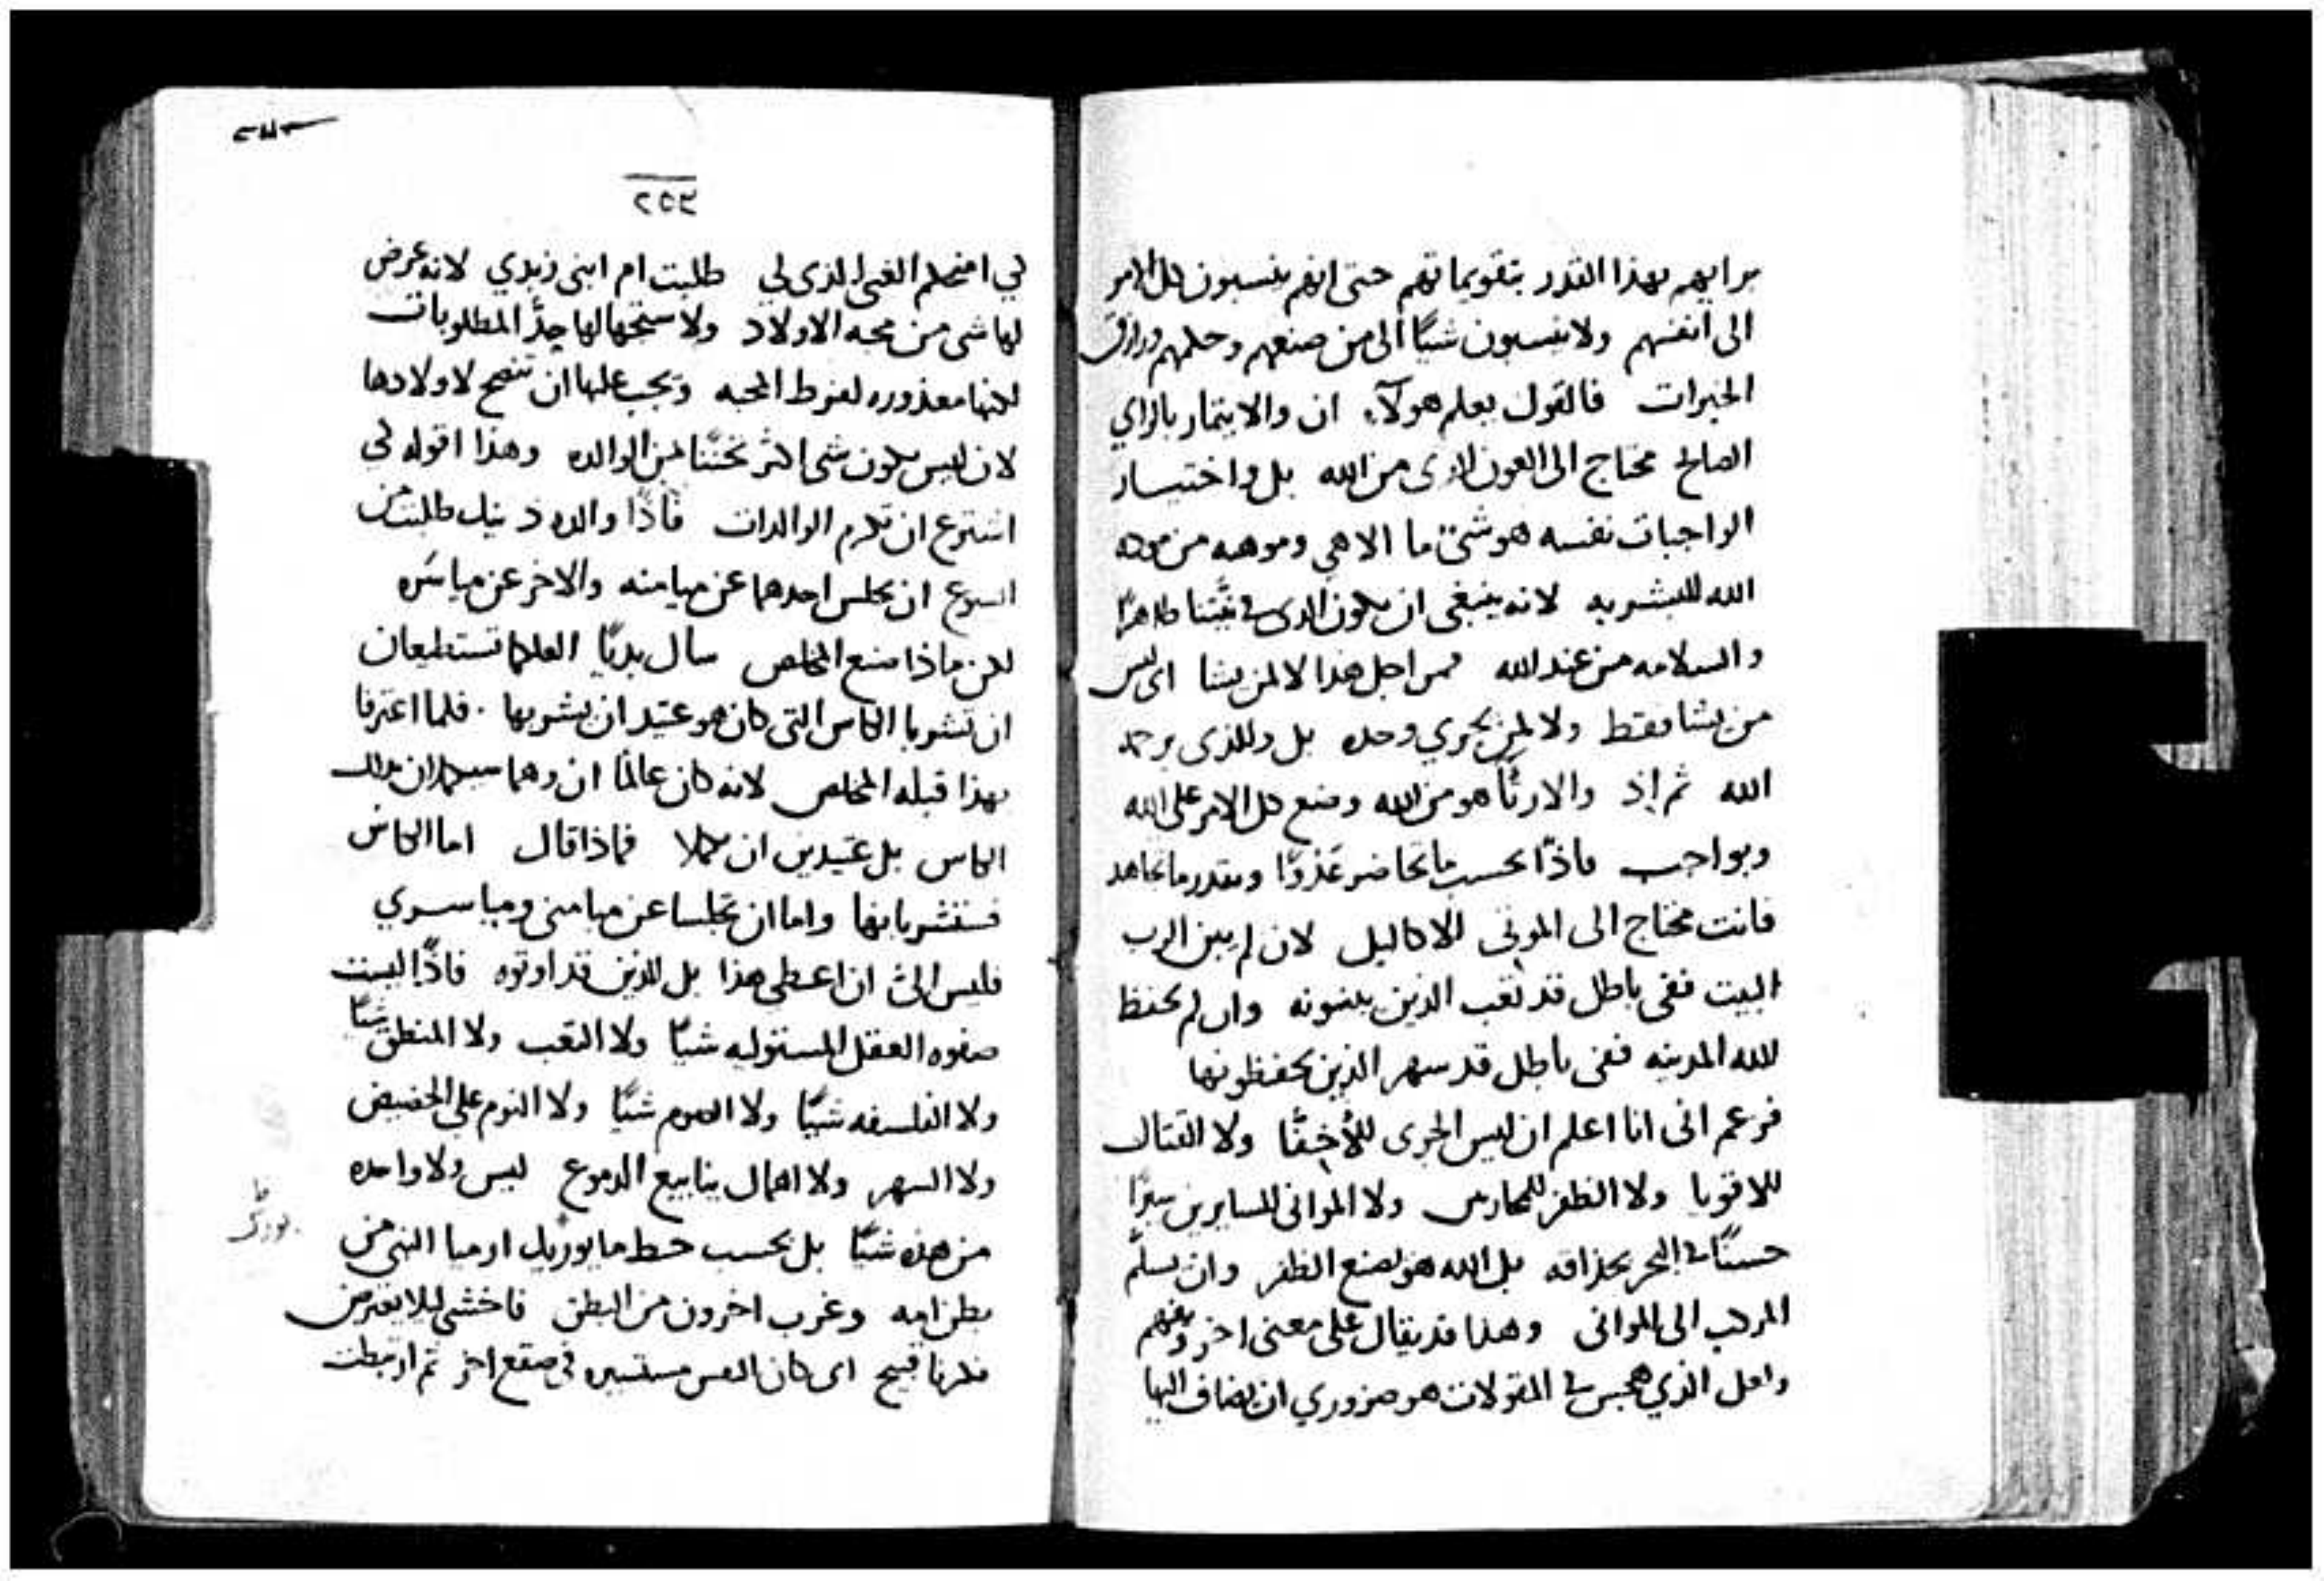 برايهم بهذا القدر بتقويماتهم حتى انهم ينسبون كل الامر
الى انفسهم ولا ينسبون شيًا الى من صنعهم وحكمهم ورازق
الخيرات فالقول يعلم هولآء ان والايتمار بالراي
الصالح محتاج الى العون الذى من الله بل واختيار
الواجبات نفسه هو شىٌ ما الاهي وموهبه من
الله للبشريه لانه ينبغى ان يكون الذى فى
والسلامه من عند الله فمن اجل هذا لا لمن يشا اى ليس
من يشا فقط ولا لمن يجري وحده بل وللذى يرحمه
الله ثم اذ والارتآ هو من الله وضع كل الامر على الله
وبواجب فاذًا بحسب ما وبقدر ما تجاهد
فانت محتاج الى الموتى للاكاليل لان لم يبن الرب
البيت ففى باطل قد تعب الذين يبنونه وان لم يحفظ
الله المدينه ففى باطل قد سهر الذين يحفظونها
فزعم انى انا اعلم ان ليس الجرى للأخفّا ولا القتال
للاقويا ولا الظفر للمحاربين ولا الموانى للسايرين سيرًا
حسنًا فى البحر بحذاقه بل الله هو يصنع الظفر وان يسلّم
المركب الى الموانى وهذا قد يقال على معنى اخر ويفهم
ولعل الذي هجس فى المقولات هو ضروري ان يضاف اليها
٢٥٣
لي امنحكم الغنى الذى لي طلبت ام ابنى زبدي لانه عرض
لها شى من محبه الاولاد ولا سيحها لها حدَّ المطلوبات
لكنها معذوره لفرط المحبه ويجب عليها ان تنصح لاولادها
لان ليس يكون شى اكثر تحننًا من الوالده وهذا اقوله لي
اشترع ان تكرم الوالدات فاذًا والده ذينك طلبت من
ايسوع ان يجلس احدهما عن ميامنه والاخر عن مياسره
لكن ماذا صنع المخلص سأل بديًا العلكما تستطيعان
ان تشربا الكاس التى كان هو عتيد ان يشربها . فلما اعترفا
بهذا قبله المخلص لانه كان عالمًا ان وهما سيكملان بذلك
الكاس بل عتيدين ان يكملا فماذا قال اما الكاس
فستشربانها واما ان تجلسا عن ميامنى ومياسري
فليس الىَّ ان اعطى هذا بل للذين قد اوتوه فاذًا اليست
صفوه العقل المستوليه شيًا ولا التعب ولا المنطق شيًا
ولا الفلسفه شيًا ولا الصوم شيًا ولا النوم على الحضيض
ولا السهر ولا اهمال ينابيع الدموع ليس ولا واحده
من هذه شيًا بل بحسب حظ ما يوزيك ارميا النبى من
بطن امه وغرب اخرون من البطن فاخشى ليلا يعترض
فكرنا قبيح اى كان النفس مستسيره فى صقع اخر ثم ارتبطت